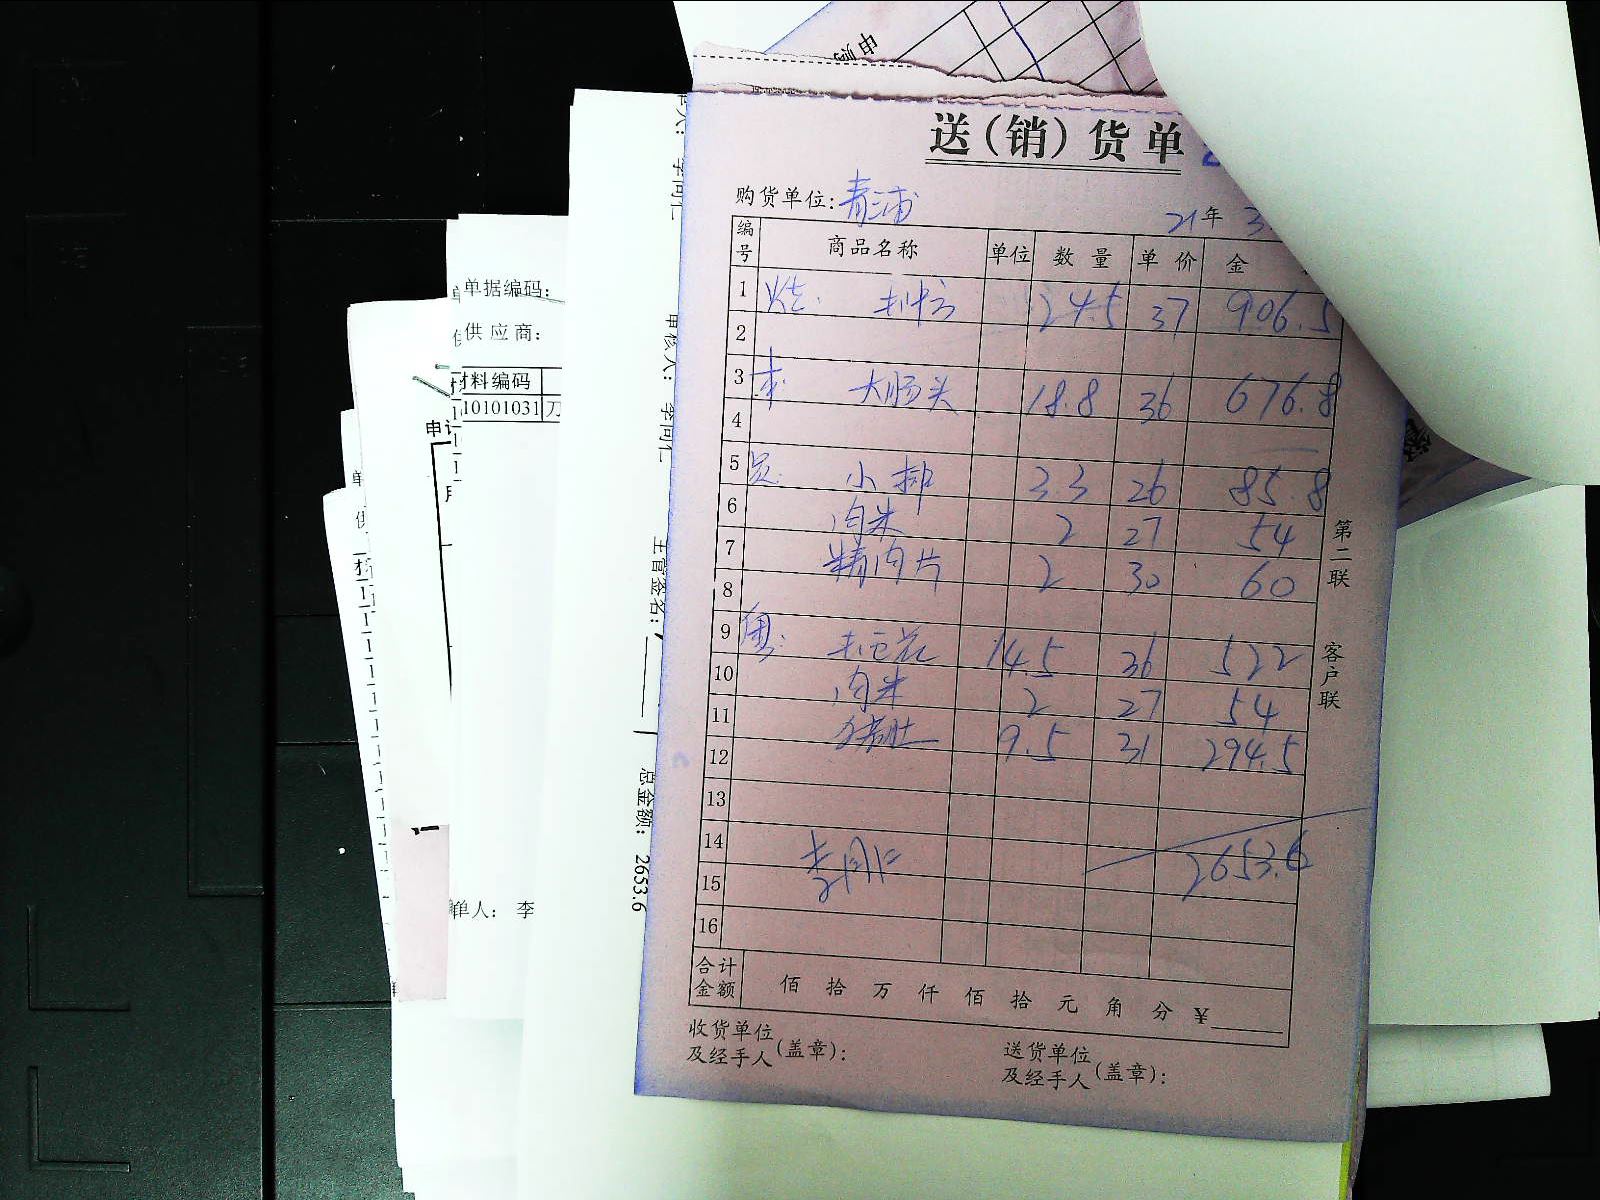 申购
送(销)货单
购货单位: 青浦
21年 3
编号 商品名称 单位 数量 单价 金
1 24.5 37 906.5
2
3 本: 大肠头 18.8 36 676.8
4
5 小排 3.3 26 85.8
6 肉米 2 27 54
7 精肉片 2 30 60
8
9 14.5 36 522
10 肉米 2 27 54
11 猪肚 9.5 31 294.5
12
13
14 2653.6
15 李同仁
16
合计金额 佰 拾 万 仟 佰 拾 元 角 分 ¥
收货单位
及经手人(盖章):
送货单位
及经手人(盖章):
第二联
客户联
单据编码:
供应商:
材料编码
10101031 刀
申
单人: 李
审核人: 李同仁
主管签名:
总金额: 2653.6